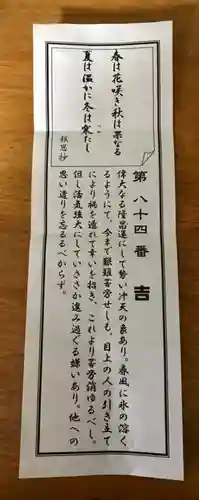 春は花咲き秋は果なる
夏は温かに冬は寒たし
報恩抄
第八十四番 吉
偉大なる隆昌運にして勢い冲天の象あり。春風に氷の溶く
るようにて、今まで艱難苦労せしも、目上の人の引き立て
により禍を遁れて幸いを招き、これより苦労消ゆるべし。
但し活気強大にしていささか進み過ぐる嫌いあり。他への
思い遣りを忘るるべからず。